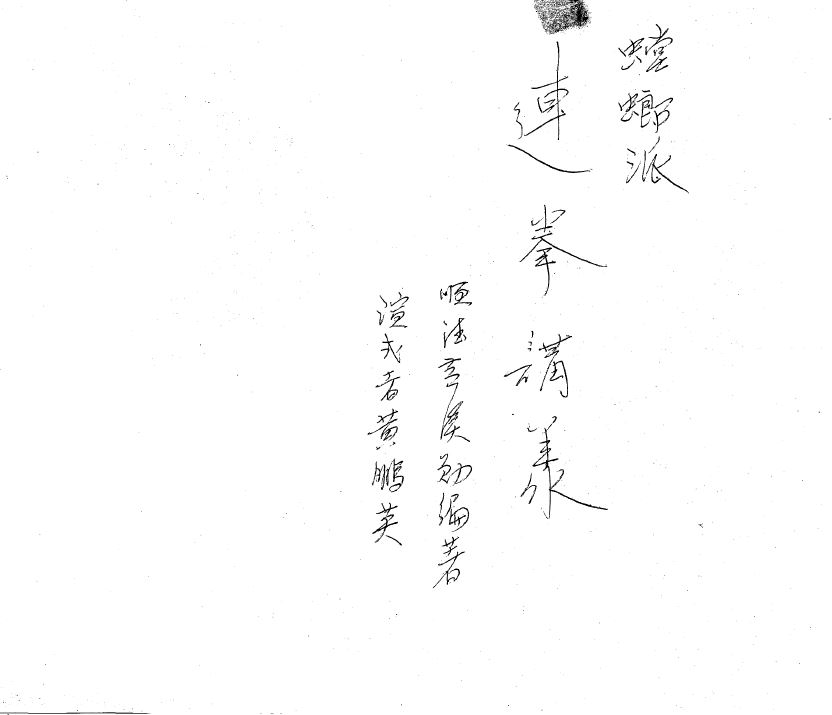 螳螂派
連拳講義
順德黃漢勛編著
演式者黃鵬英